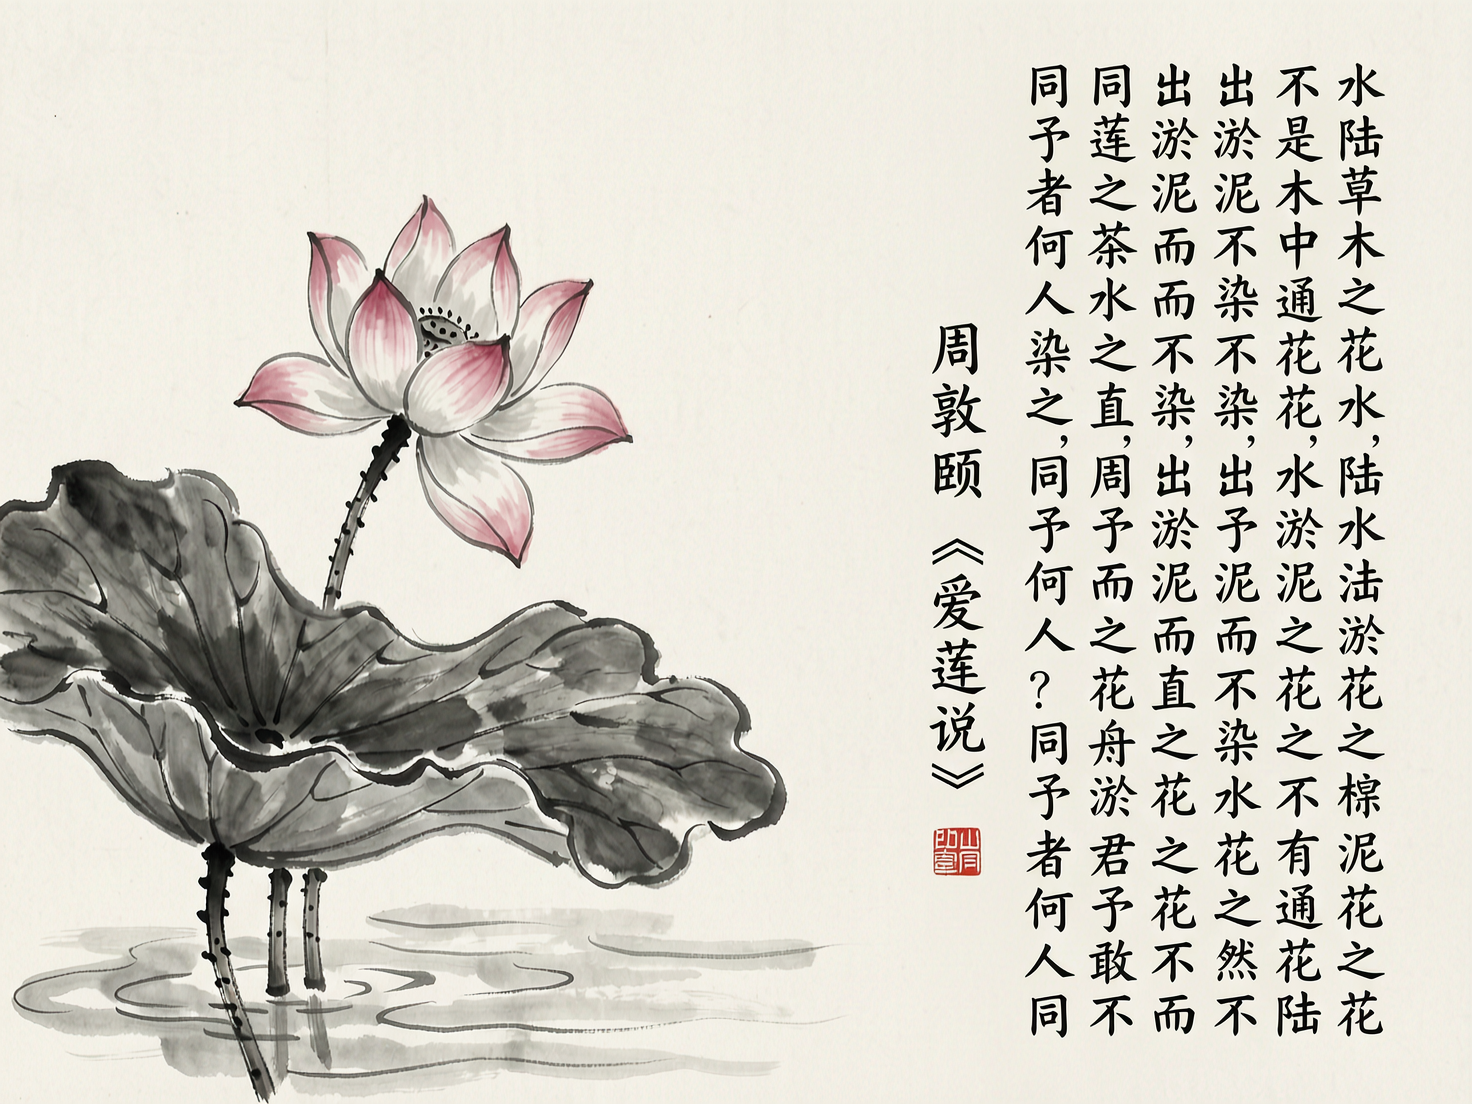 水陆草木之花水，陆水淤花之泥花之花
不是木中通花花，水淤泥之花之不有通花陆
出淤泥不染不染，出予泥而不染水花之然不
出淤泥而而不染，出淤泥而直之花之花不而
同莲之茶水之直，周予而之花舟淤君予敢不
同予者何人染之，同予何人？同予者何人同
周敦颐《爱莲说》